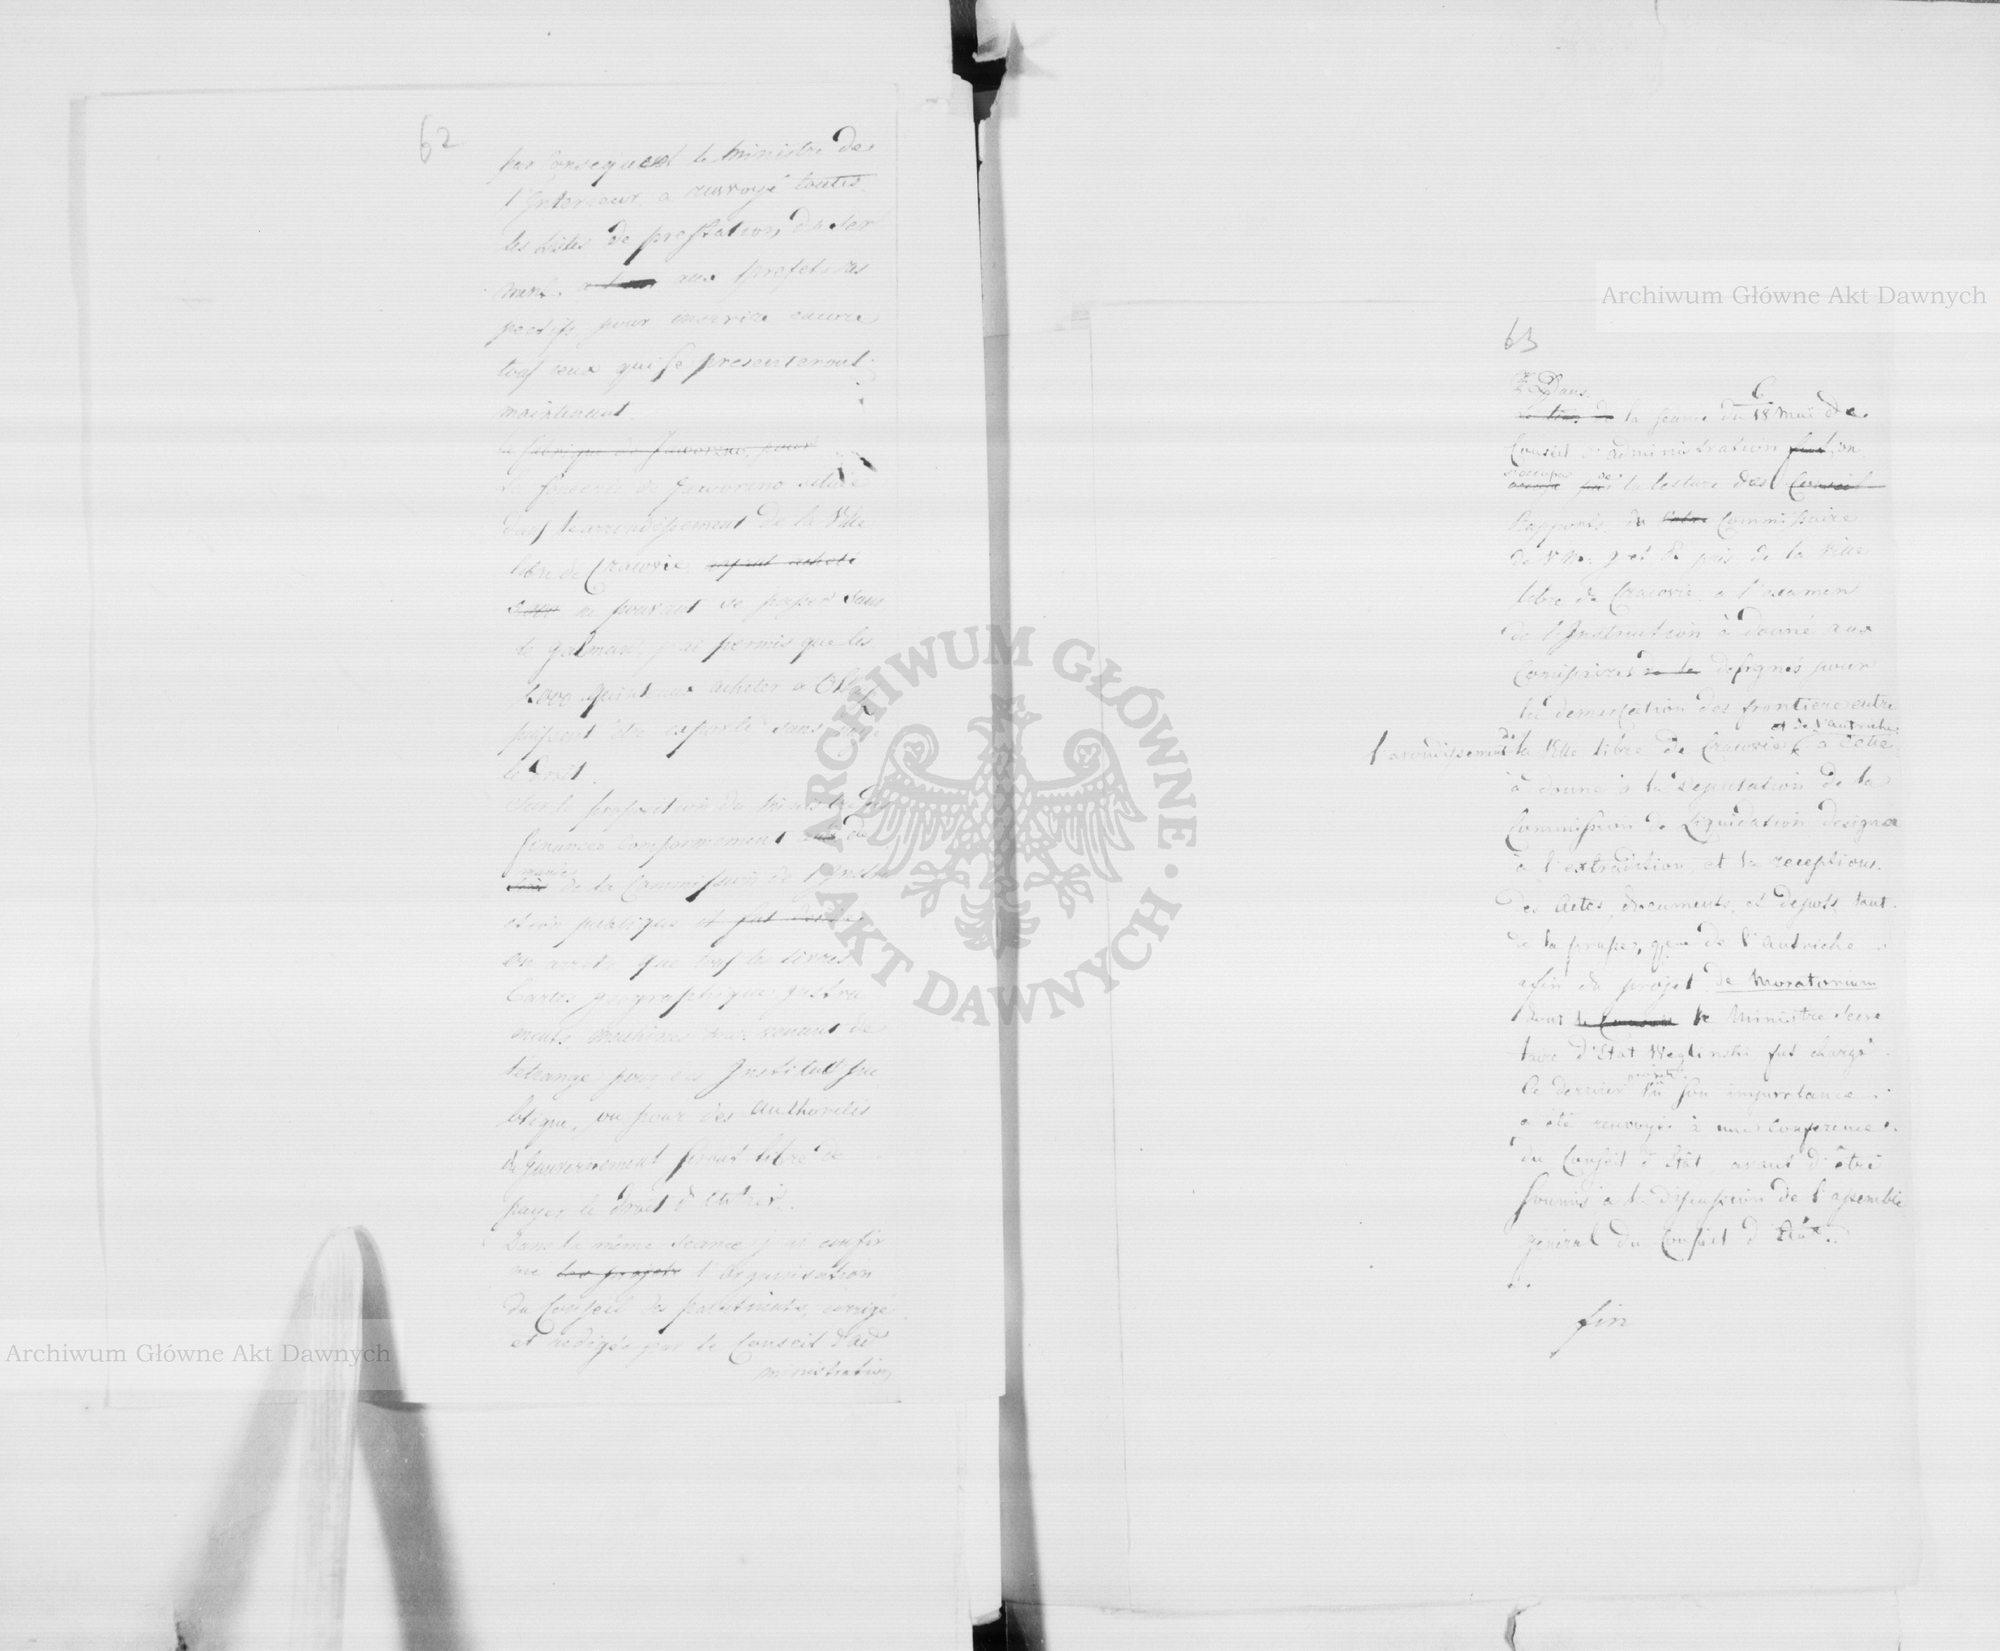 62
par consequent le ministre de
l'Interieur, a renvoyé toutes
les listes de prestation du ser
ment aux prefets res
pectifs, pour inscrire encore
tous ceux qui se presenteront
maintenant.
la fabrique de Jaworzno, pour
de Jaworzno située
dans l'arrondissement de la Ville
libre de Cracovie, ayant acheté
ne pouvant se passer sans
le galman, j'ai permis que les
quintaux acheter a
puissent être exporté sans
le droit.
Sur la proposition du Ministre des
finances conformement de
de la Commission de l'Instru
ction publique et fut
on arreta que tous les livres
Cartes geographiques, Instru
ments, machines venant de
l'etranger pour les Instituts pu
blique, ou pour des authorités
du gouvernement seront libre de
payer le droit d'entrée.
Dans la même seance j'ai confir
mé les projets l'organisation
du Conseil des palatinats, corrigé
et redigée par le Conseil d'ad
ministration
63
Dans
la seance du 18 mai de
Conseil d'administration fut on
s'occupa de la lecture des Conseil
Rapports du Commissaire
de près de la Ville
libre de Cracovie, a l'examen
de l'Instruction à donné aux
Comissaires de la designés pour
la demarcation des frontieres entre
et de l'autriche
l'arondissement de la Ville libre de Cracovie a celle
à donné à la deputation de la
Commission de Liquidation designée
à l'extradition, et la receptions
des Actes, documents, et depots tant
de la prusse, que de l'autriche
afin du projet de Moratorium
dont le Conseil le Ministre Secre
taire d'Etat Weglinski fut chargé
Ce dernier vu son importance
a été renvoyé à une conference
du Conseil d'Etat, avant d'être
soumis a la discussion de l'assemblé
général du Conseil d'Etat.
fin
Archiwum Główne Akt Dawnych
Archiwum Główne Akt Dawnych
ARCHIWUM GŁÓWNE · AKT DAWNYCH ·